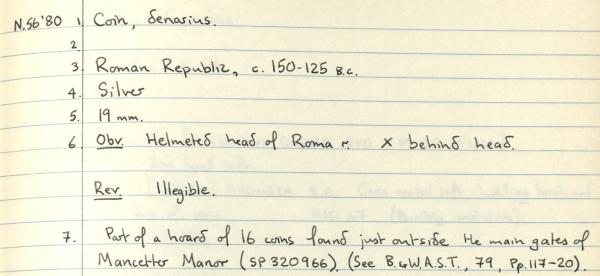 N.56'80 1. Coin, denarius.
2.
3. Roman Republic, c. 150-125 B.C.
4. Silver
5. 19 mm.
6. Obv. Helmeted head of Roma r. X behind head.
Rev. Illegible.
7. Part of a hoard of 16 coins found just outside the main gates of
Mancetter Manor (SP 320966). (See B.&W.A.S.T., 79, Pp.117-20).